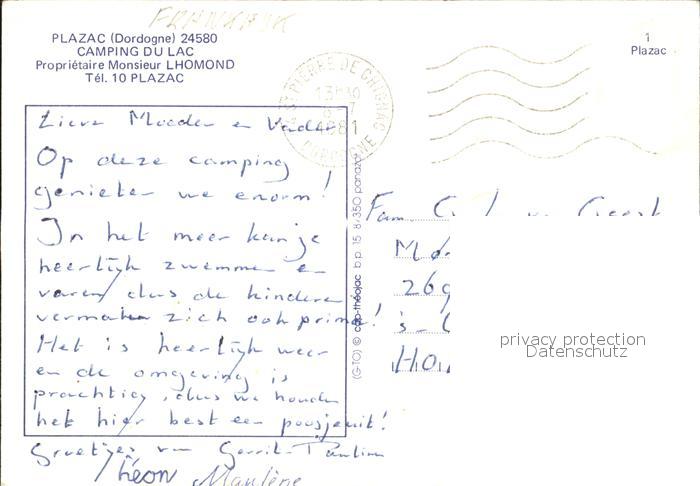 FRANKRIJK
PLAZAC (Dordogne) 24580
CAMPING DU LAC
Propriétaire Monsieur LHOMOND
Tél. 10 PLAZAC
1
Plazac
ST PIERRE DE CHIGNAC
13H30
8-7
1981
DORDOGNE
Lieve Moeder en Vader
Op deze camping
genieten we enorm!
In het meer kan je
heerlijk zwemmen en
varen, dus de kinderen
vermaken zich ook prima!
Het is heerlijk weer
en de omgeving is
prachtig, dus we houden
het hier best een poosje uit!
Groetjes van Gerrit - Pauline
Léon Marlène
(G-TO) © cap-théojac b.p. 15 87350 panazol
Fam.
269
privacy protection
Datenschutz